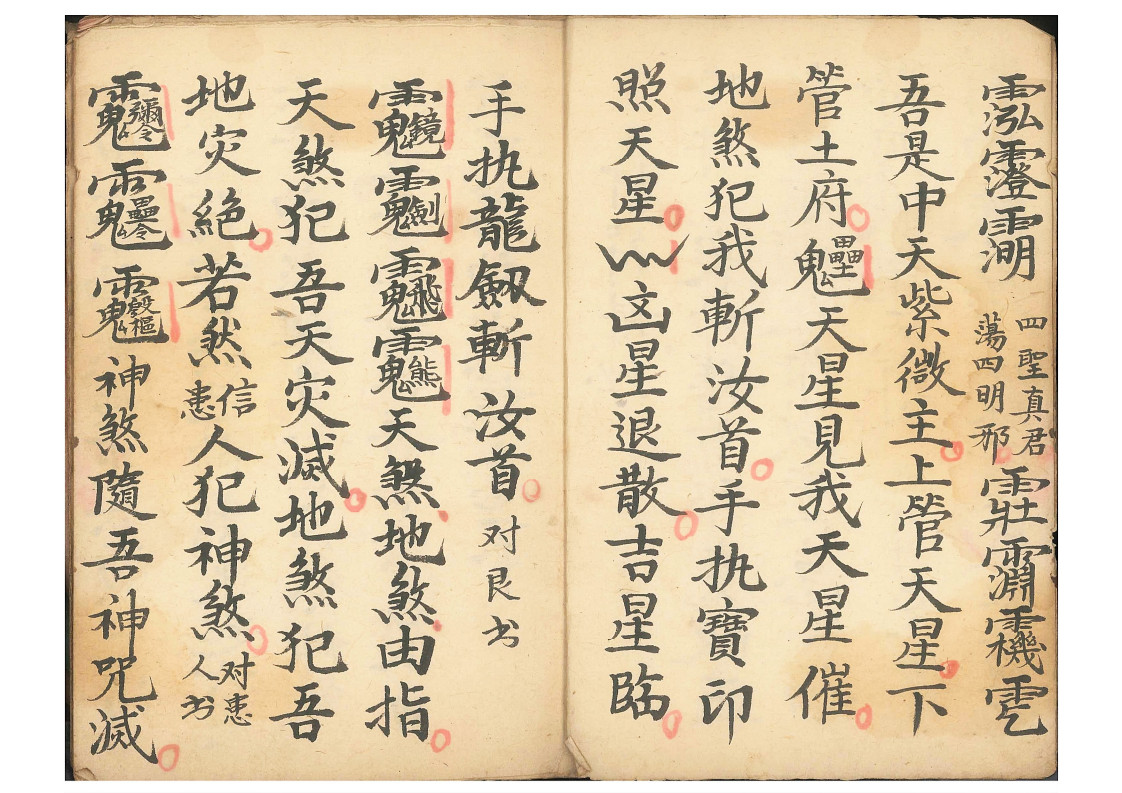 四聖真君
蕩四明邪
吾是中天紫微主上管天星下
管土府天星見我天星催
地煞犯我斬汝首手执寶印
照天星凶星退散吉星臨
手执龍劔斬汝首对艮书
天煞地煞由指
天煞犯吾天灾滅地煞犯吾
地灾絕若然信患人犯神煞对患人书
神煞隨吾神咒滅